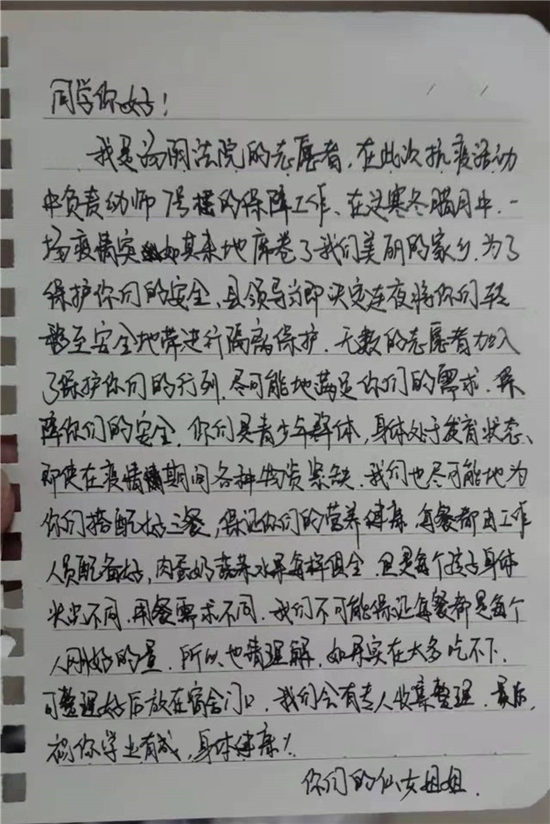 同学你好！
我是汤阴法院的志愿者，在此次抗疫活动
中负责幼师7号楼的保障工作、在这寒冬腊月中，一
场疫情突如其来地席卷了我们美丽的家乡.为了
保护你们的安全、县领导当即决定连夜将你们转
移至安全地带进行隔离保护.无数的志愿者加入
了保护你们的行列.尽可能地满足你们的需求.保
障你们的安全.你们是青少年群体,身体处于发育状态、
即使在疫情期间各种物资紧缺.我们也尽可能地为
你们搭配好三餐,保证你们的营养健康.每餐都由工作
人员配备好,肉蛋奶蔬菜水果每样俱全.但是每个孩子身体
状况不同.用餐需求不同.我们不可能保证每餐都是每个
人刚好的量.所以也请理解.如果实在太多吃不下.
可整理好后放在宿舍门口.我们会有专人收集整理.最后,
祝你学业有成,身体健康!
你们的仙女姐姐.